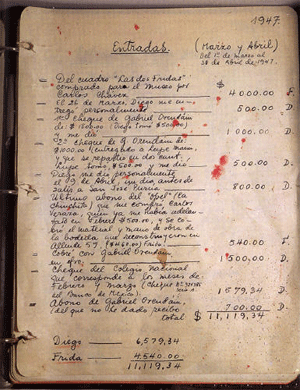 1947.
Entradas. (Marzo y Abril)
Del 1º de Marzo al
30 de Abril de 1947.
Del cuadro "Las dos Fridas"
comprado para el Museo por
Carlos Chávez $ 4000.00 F.
El 26 de Marzo, Diego me en-
tregó personalmente 500.00 D.
1er cheque de Gabriel Orendáin
de $ 1500.00 (Diego tomó $500.00)
y me dio 1000.00 D.
2º cheque de G. Orendáin de
$1000.00 (entregado a Lupe Marín,
y que se repartió en dos
Lupe tomó $500.00 y me dio 500.00 D.
Diego me dio personalmente
el 23 de Abril, un día antes de
salir a San José Purúa 800.00 D.
Ultimo abono del "Opel" (la
chuchita) que me compró Carlos
Veraza, quien ya me había adelan-
tado en Febrero $500.00, y se co-
bró el material y mano de obra de
la bodeguita que reconstruyeron en
Allende 59. ($460.00) Tanto 540.00 F.
Cobré, con Gabriel Orendáin
1500,00 D.
Cheque del Colegio Nacional
que corresponde a los meses de
Febrero y Marzo (Cheque
el Banco de México) 1579.34 D.
Abono de Gabriel Orendáin,
(del que no he dado recibo 700.00 D.
Total: $ 11,119,34
Diego — 6,579,34
Frida — 4.540.00
11,119.34